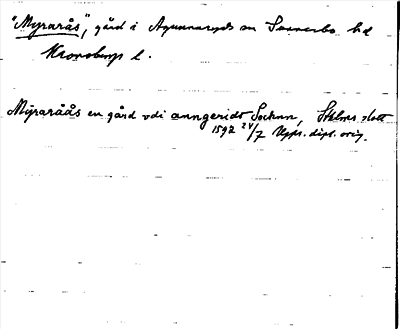 "Myrarås", gård i Agunnaryds sn Sunnerbo hd
Kronobergs l.
Myraråås en gård vdi anngeridt Sochnn, Sthlms slott
1592 24/7 Uppl. dipl. orig.